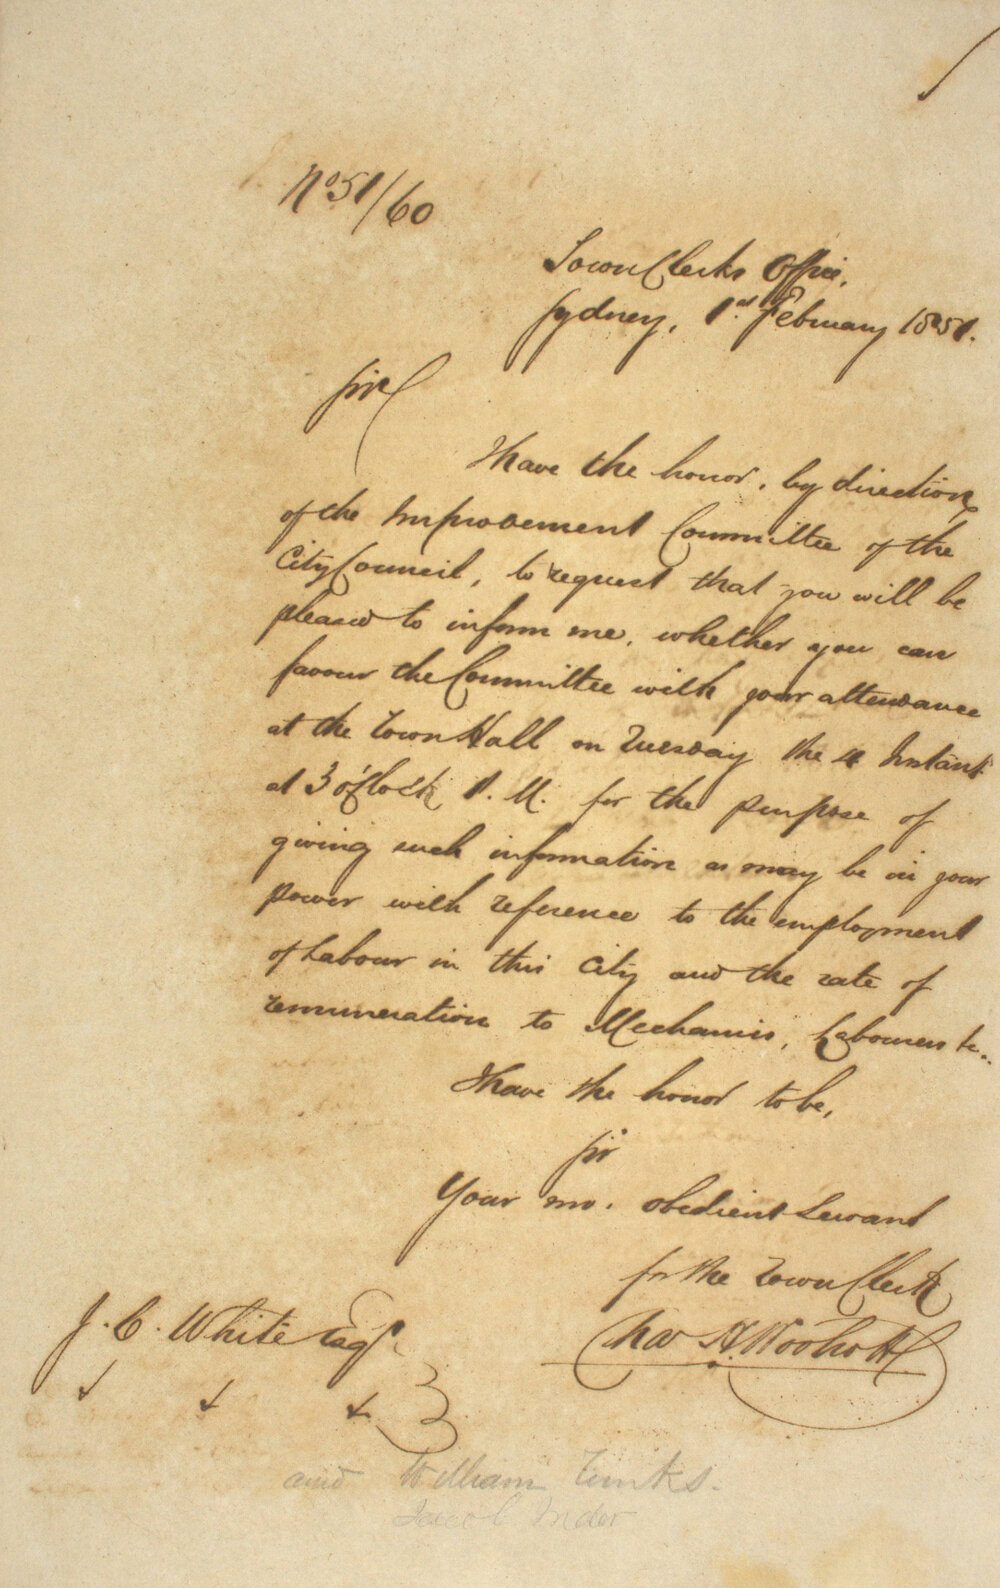 No 51/60
Town Clerks Office,
Sydney, 1st February 1851.
Sir
I have the honor, by direction
of the Improvement Committee of the
City Council, to request that you will be
pleased to inform me, whether you can
favour the Committee with your attendance
at the Town Hall on Tuesday the 4 Instant
at 3 o'Clock P. M. for the purpose of
giving such information as may be in your
power with reference to the employment
of Labour in this City and the rate of
remuneration to Mechanics, Labourers &c..
I have the honor to be,
Sir
Your mo. obedient Servant
for the Town Clerk
Chas H. Woolcott
J. C. White Esqr.
and William Tunks.
Jacob Inder